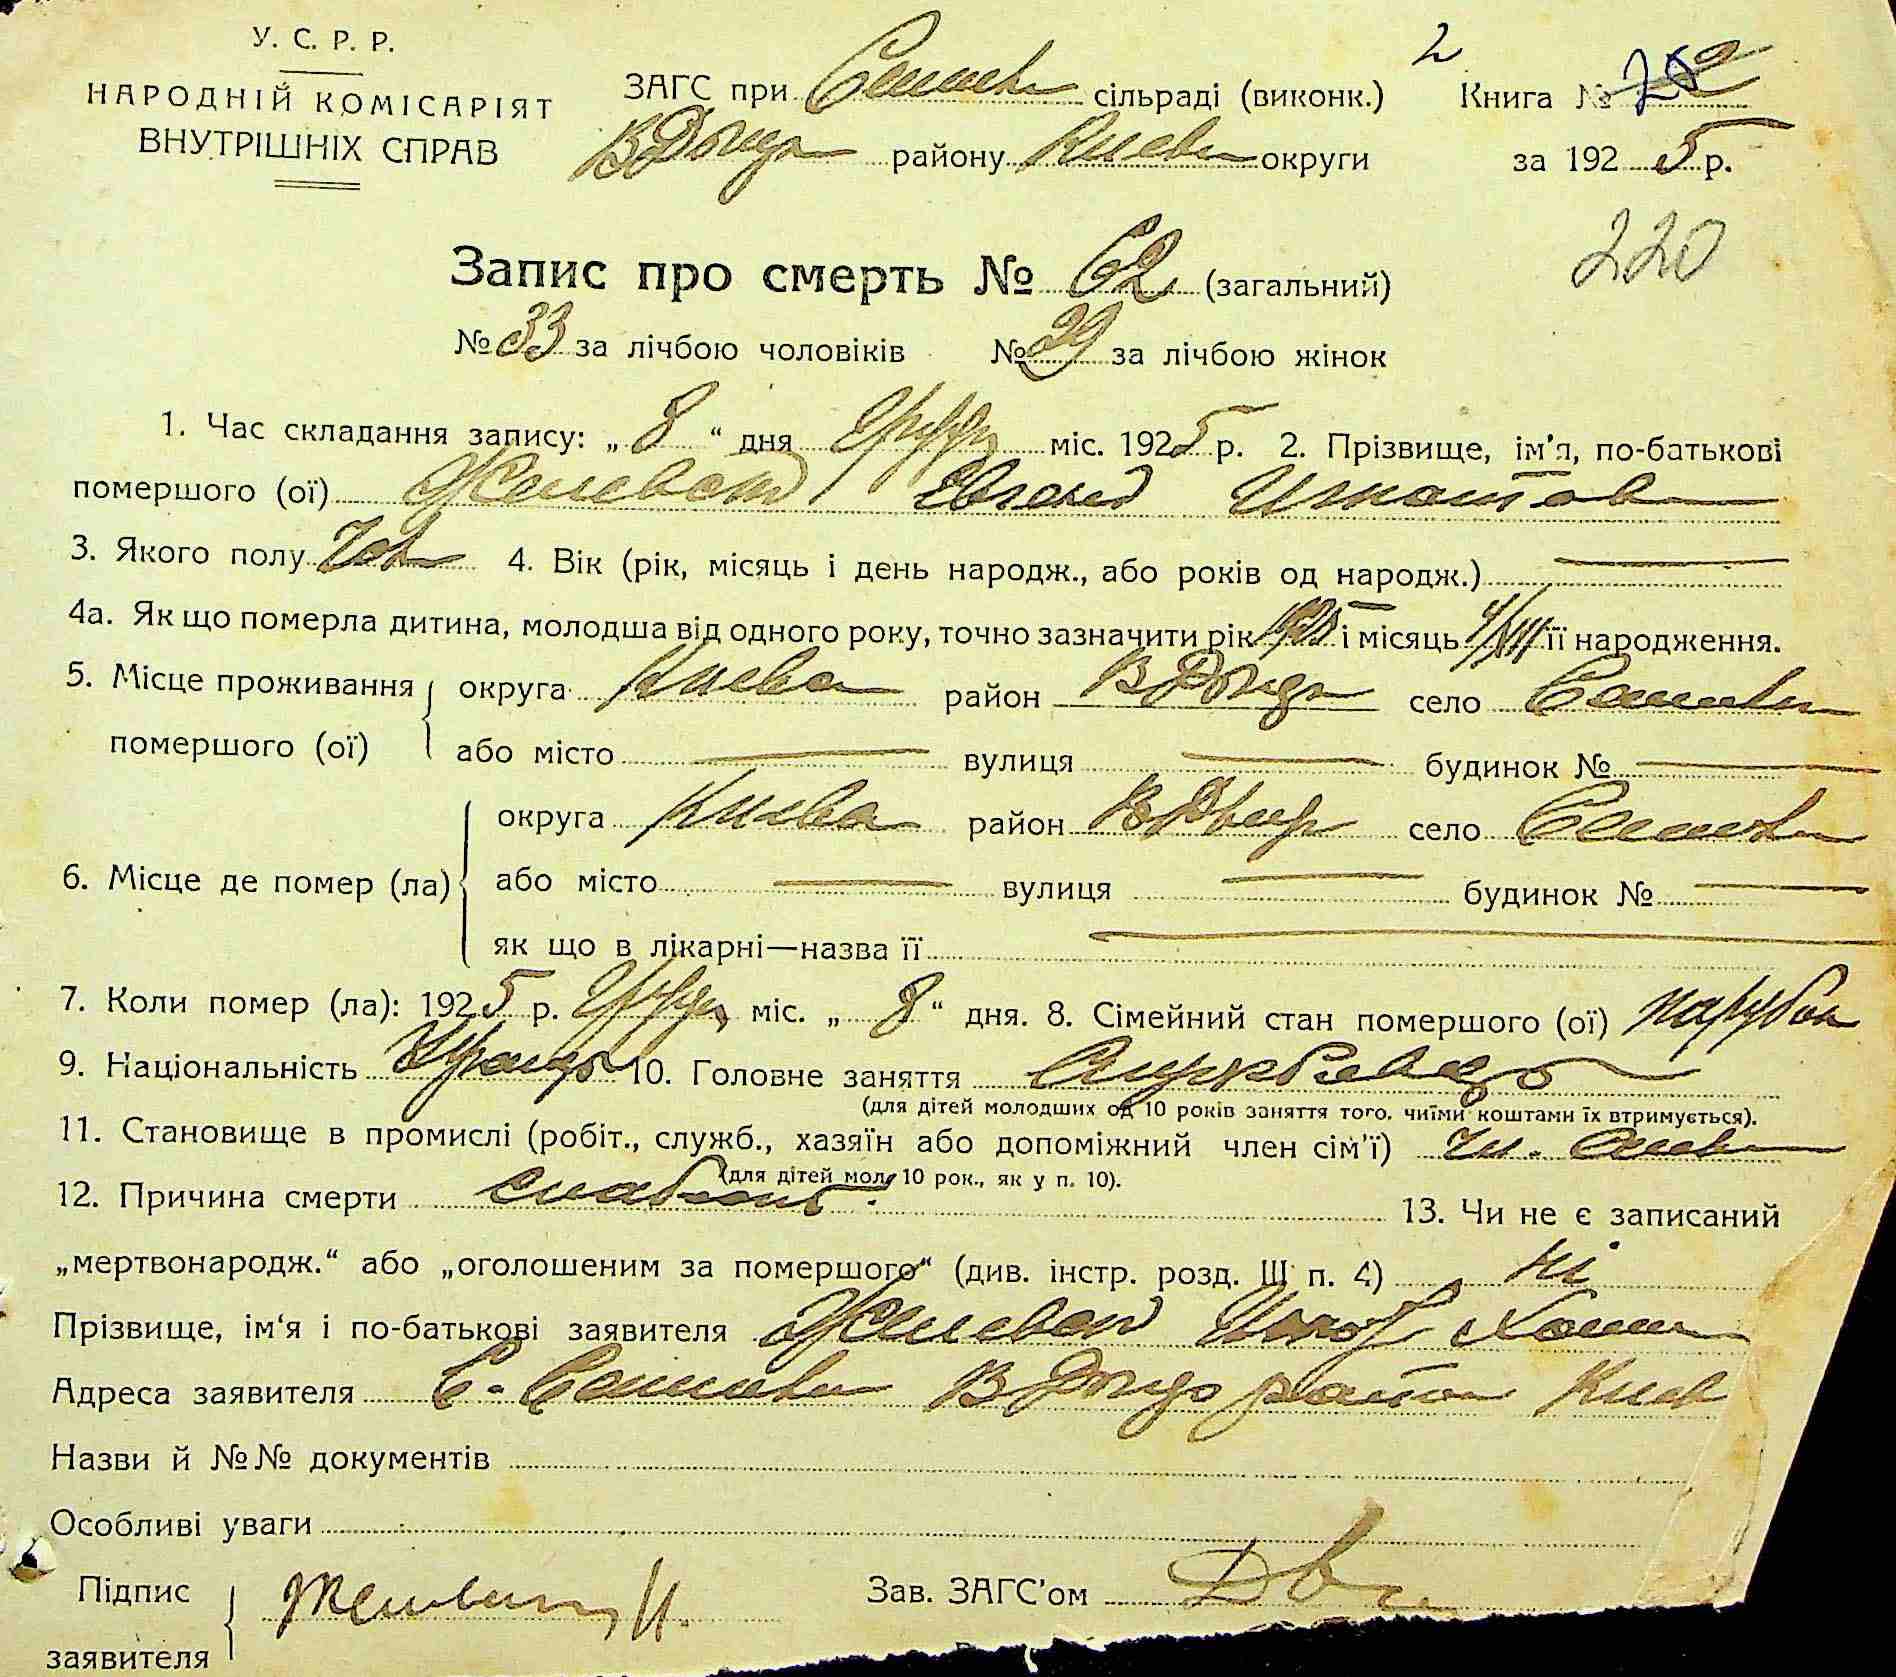 У. С. Р. Р.
НАРОДНІЙ КОМІСАРІЯТ
ВНУТРІШНІХ СПРАВ
ЗАГС при сільраді (виконк.)
району Києв округи
2
Книга №
за 1925 р.
220
Запис про смерть № 62 (загальний)
№ 33 за лічбою чоловіків № 29 за лічбою жінок
1. Час складання запису: „ 8 “ дня Груд міс. 1925 р. 2. Прізвище, ім'я, по-батькові
помершого (ої)
3. Якого полу Чов 4. Вік (рік, місяць і день народж., або років од народж.)
4а. Як що померла дитина, молодша від одного року, точно зазначити рік 1925 і місяць її народження.
5. Місце проживання помершого (ої) округа Києва район село
або місто вулиця будинок №
6. Місце де помер (ла) округа Києва район село
або місто вулиця будинок №
як що в лікарні—назва її
7. Коли помер (ла): 1925 р. Груд міс. „ 8 “ дня. 8. Сімейний стан помершого (ої) парубок
9. Національність 10. Головне заняття
(для дітей молодших од 10 років заняття того, чиїми коштами їх втримується).
11. Становище в промислі (робіт., служб., хазяїн або допоміжний член сім'ї)
(для дітей мол. 10 рок., як у п. 10).
12. Причина смерти слабость. 13. Чи не є записаний
„мертвонародж.“ або „оголошеним за помершого“ (див. інстр. розд. III п. 4) ні
Прізвище, ім'я і по-батькові заявителя
Адреса заявителя С. район Києв
Назви й №№ документів
Особливі уваги
Підпис заявителя
Зав. ЗАГС'ом